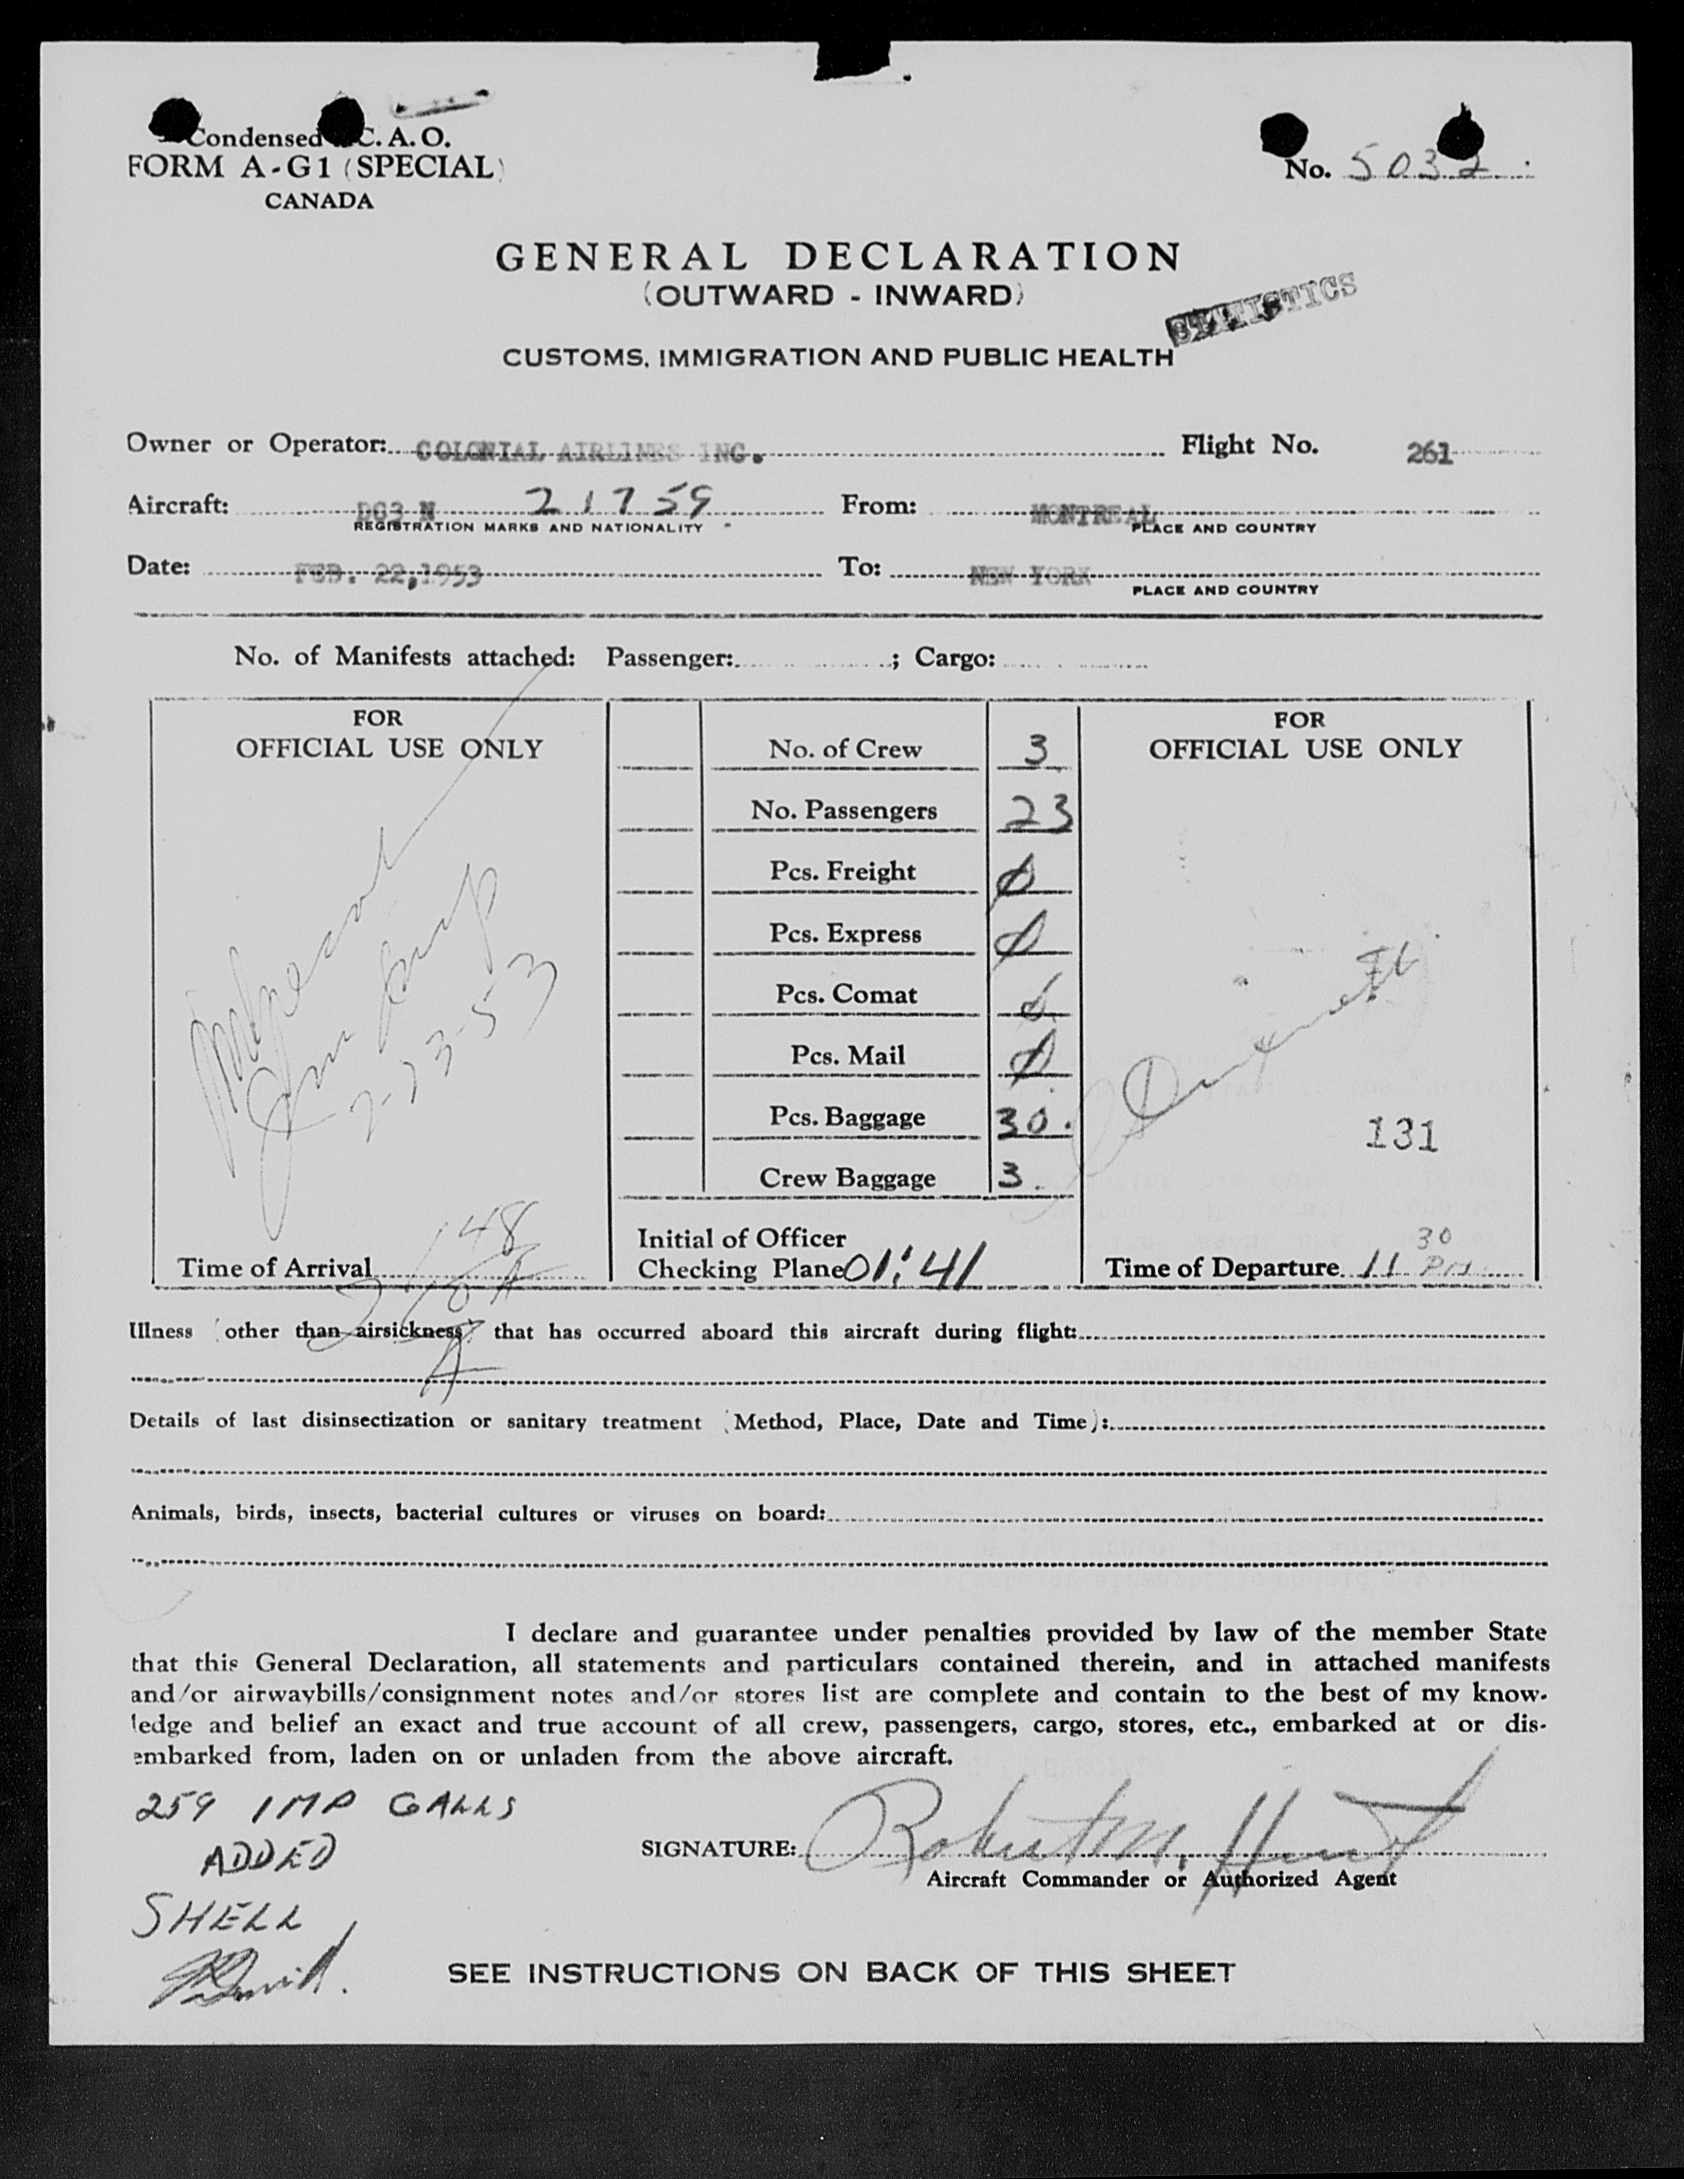 Condensed C. A. O.
FORM A-G1 (SPECIAL)
CANADA
No. 5032
GENERAL DECLARATION
(OUTWARD - INWARD)
STATISTICS
CUSTOMS, IMMIGRATION AND PUBLIC HEALTH
Owner or Operator: COLONIAL AIRLINES INC. Flight No. 261
Aircraft: DC3 N 21759 From: MONTREAL
REGISTRATION MARKS AND NATIONALITY PLACE AND COUNTRY
Date: FEB. 22,1953 To: NEW YORK
PLACE AND COUNTRY
No. of Manifests attached: Passenger: ; Cargo:
FOR
OFFICIAL USE ONLY
2-23-53
Time of Arrival 148 A
No. of Crew 3
No. Passengers 23
Pcs. Freight 0
Pcs. Express 0
Pcs. Comat 0
Pcs. Mail 0
Pcs. Baggage 30.
Crew Baggage 3.
Initial of Officer
Checking Plane 01:41
FOR
OFFICIAL USE ONLY
131
Time of Departure 11 30 PM
Illness (other than airsickness) that has occurred aboard this aircraft during flight:
Details of last disinsectization or sanitary treatment (Method, Place, Date and Time):
Animals, birds, insects, bacterial cultures or viruses on board:
I declare and guarantee under penalties provided by law of the member State
that this General Declaration, all statements and particulars contained therein, and in attached manifests
and/or airwaybills/consignment notes and/or stores list are complete and contain to the best of my know-
ledge and belief an exact and true account of all crew, passengers, cargo, stores, etc., embarked at or dis-
embarked from, laden on or unladen from the above aircraft.
259 IMP GALLS
ADDED
SHELL
SIGNATURE: Robert M. Hunt
Aircraft Commander or Authorized Agent
SEE INSTRUCTIONS ON BACK OF THIS SHEET